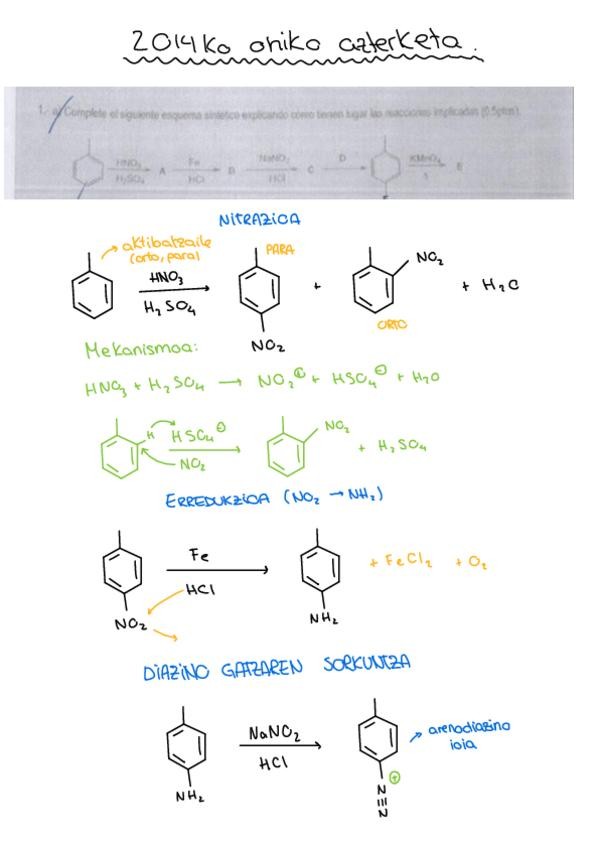 2014ko ohiko azterketa.
1. a) Complete el siguiente esquema sintético explicando cómo tienen lugar las reacciones implicadas (0.5ptos).
HNO3 H2SO4 A Fe HCl B NaNO2 HCl C D KMnO4 E
NITRAZIOA
aktibatzaile
(orto, para)
HNO3
H2SO4
PARA
NO2
+
NO2
ORTO
+ H2O
Mekanismoa:
HNO3 + H2SO4 → NO2⊕ + HSO4⊖ + H2O
H HSO4⊖
NO2
NO2
+ H2SO4
ERREDUKZIOA (NO2 → NH2)
NO2
Fe
HCl
NH2
+ FeCl2 + O2
DIAZINO GATZAREN SORKUNTZA
NH2
NaNO2
HCl
⊕
N
≡
N
arenodiazino
ioia